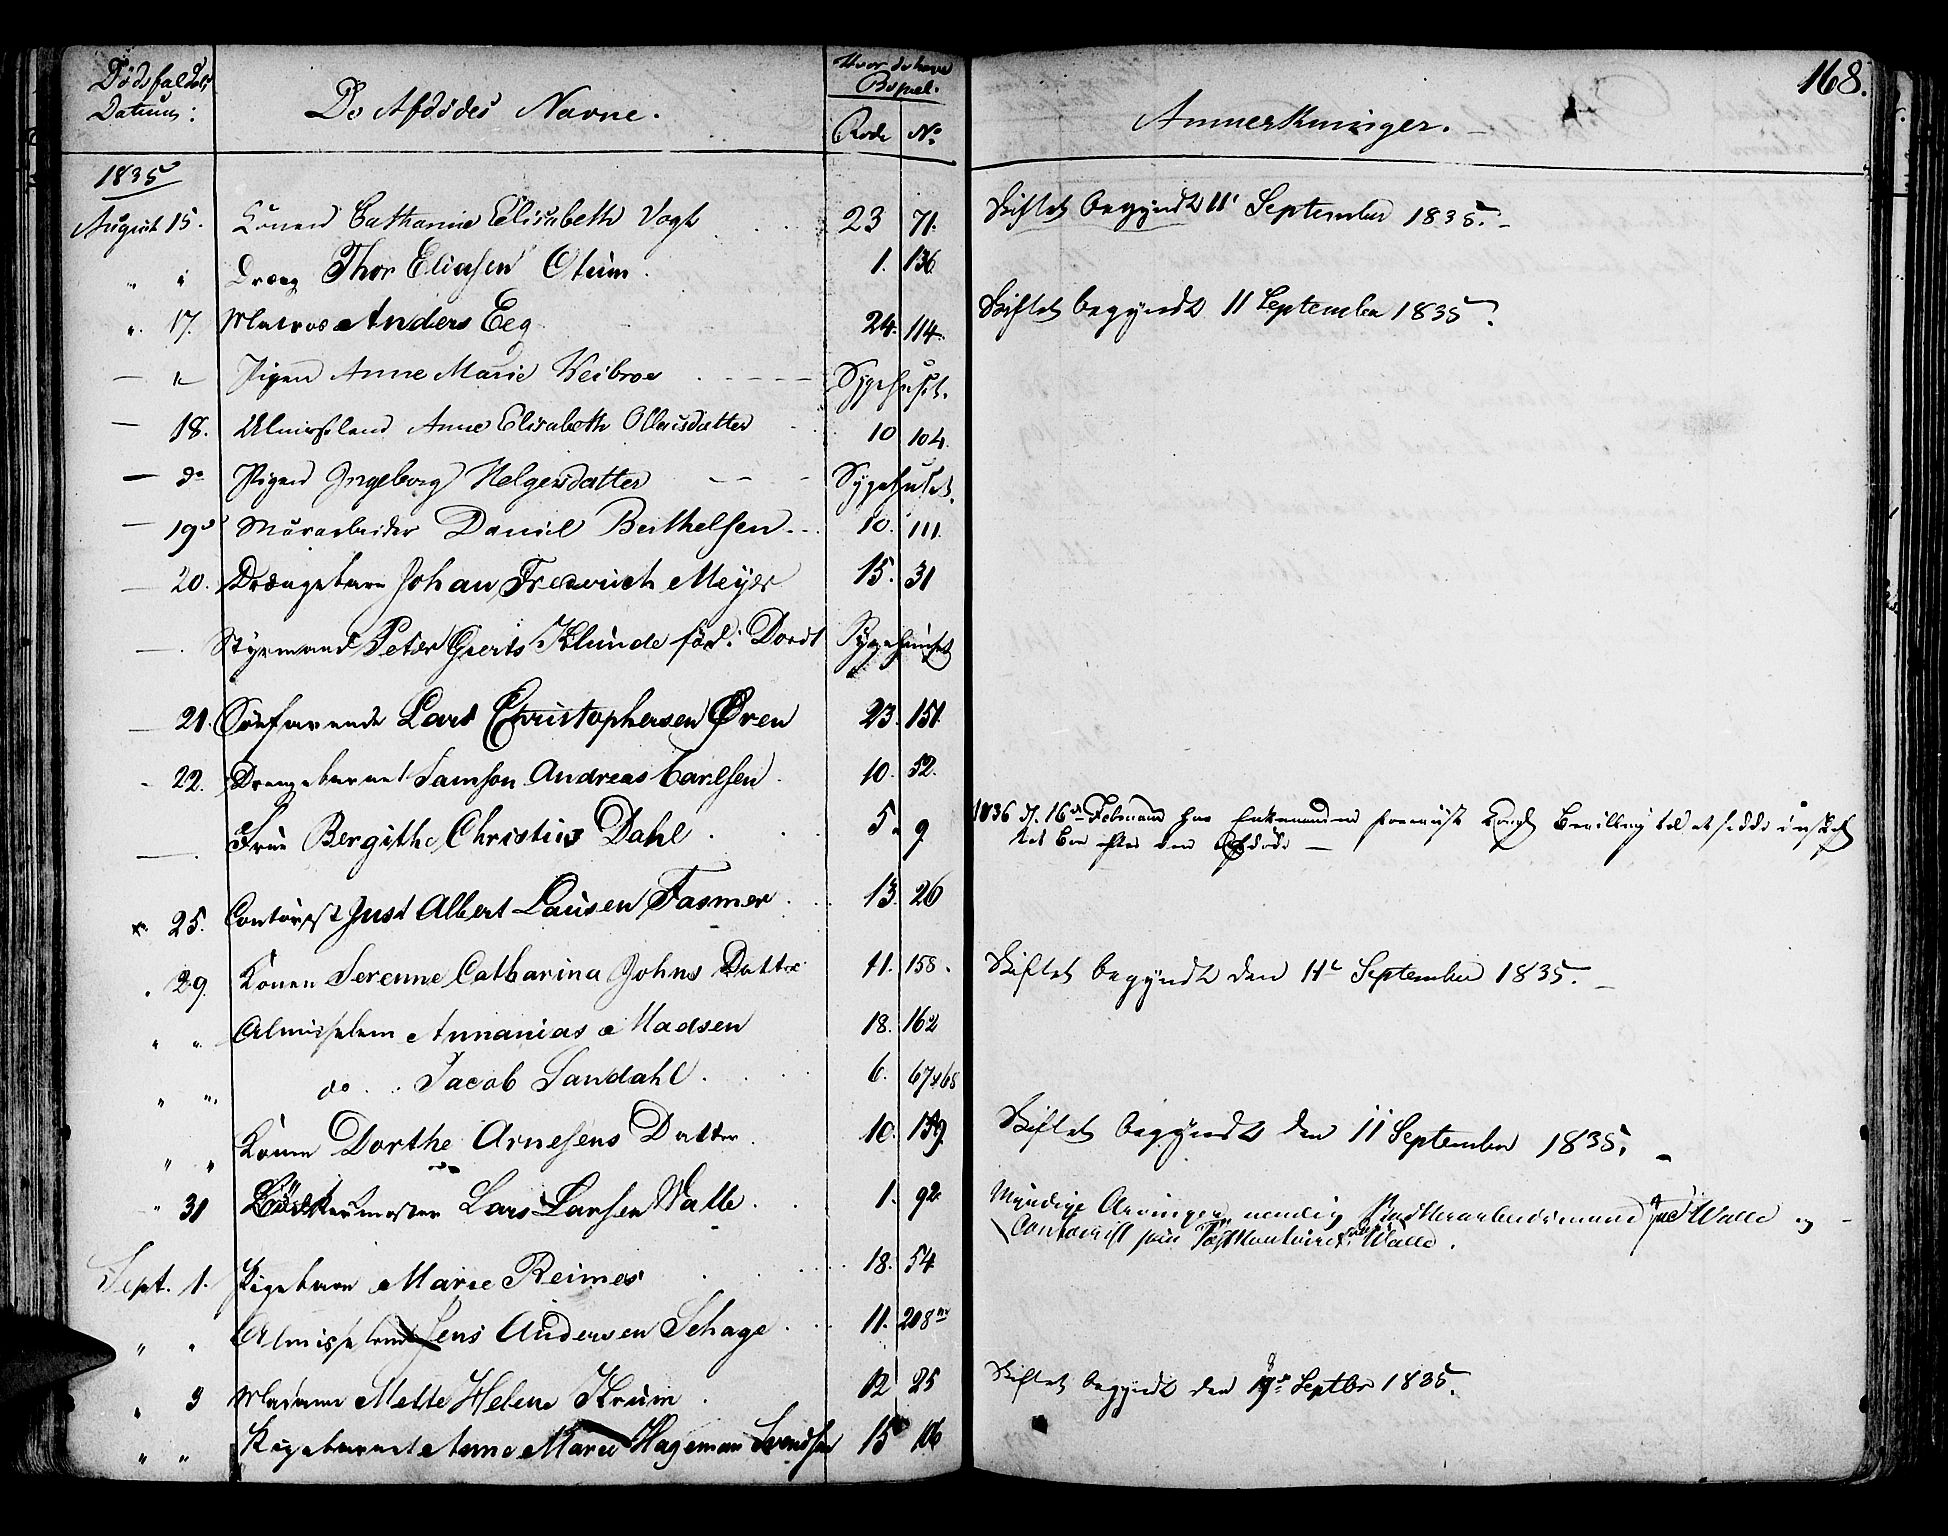 168.
Dødsfaldes Datum:
De Afdødes Navne.
Hvor de have Bopæl.
Rode No
Anmerkninger.
1835
August 15. Konen Cathanie Elisabeth Vogt 23 71. Skiftet begyndt 11' September 1835.
" " Dreng Thor Eliasen Otium. 1. 136
" 17. Matros Anders Eeg 24. 114. Skiftet begyndt 11 September 1835.
— " Pigen Anne Marie Weibroe Sygehuset.
— 18. Almisselem Anne Elisabeth Ollausdatter 10 104.
— do Pigen Ingeborg Helgesdatter Sygehuset.
— 19de Murarbeider Daniel Berthelsen 10. 111.
— 20. Drængebarn Johan Frederich Meyer 15. 31
— Styrmand Peter Geerts Klunde fød i Dordt Sygehuuset
— 21. Søefarende Lars Christophersen Øren 23. 151.
- 22. Drengebarnet Samson Andreas Carlsen. 10. 52.
—. Frue Bergithe Christine Dahl. 5. 9 1836 d. 16de Februar har Enkemanden foreviist Kongl. Bevilling til at sidde i uskif
tet Boe efter den Afdøde —
" 25. Contorist Just Albert Lausen Fasmer. 13. 26
" 29. Konen Serenne Catharina Johns Datter 11. 158. Skiftet begyndt den 11te September 1835.
" " Almisselem Annanias Madsen 18. 162
" " do Jacob Sandahl. 6. 67 & 68
" " Konen Dorthe Arnesens Datter. 10. 159. Skiftet begyndt den 11 September 1835.
" 31 Bødkermester Lars Larsen Valle. 1. 92. Myndige Arvinger nemlig Værtlerarbeidsmand Walle og
Contorist paa Postkontoiret Walle.
Sept. 1. Pigebarn Marie Reimes 18. 54.
" " Almisselem Jens Andersen Schage. 11. 208
" 3 Madame Mette Helene Krum. 12 25 Skiftet begyndt den Septbr 1835.
" " Pigebarnet Anne Marie Hageman Svendsen 15 106